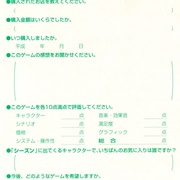 ●購入されたお店を教えてください。
●購入金額はいくらでしたか。
●いつ購入しましたか。
平成　年　月　日
●このゲームの感想をお聞かせください。
●このゲームを各10点満点で評価してください。
キャラクター　点　音楽・効果音　点
シナリオ　点　満足度　点
価格　点　グラフィック　点
システム・操作性　点　総合　点
●「シーズン」に出てくるキャラクターで、いちばんのお気に入りは誰ですか？
●今後、どのようなゲームを希望しますか。